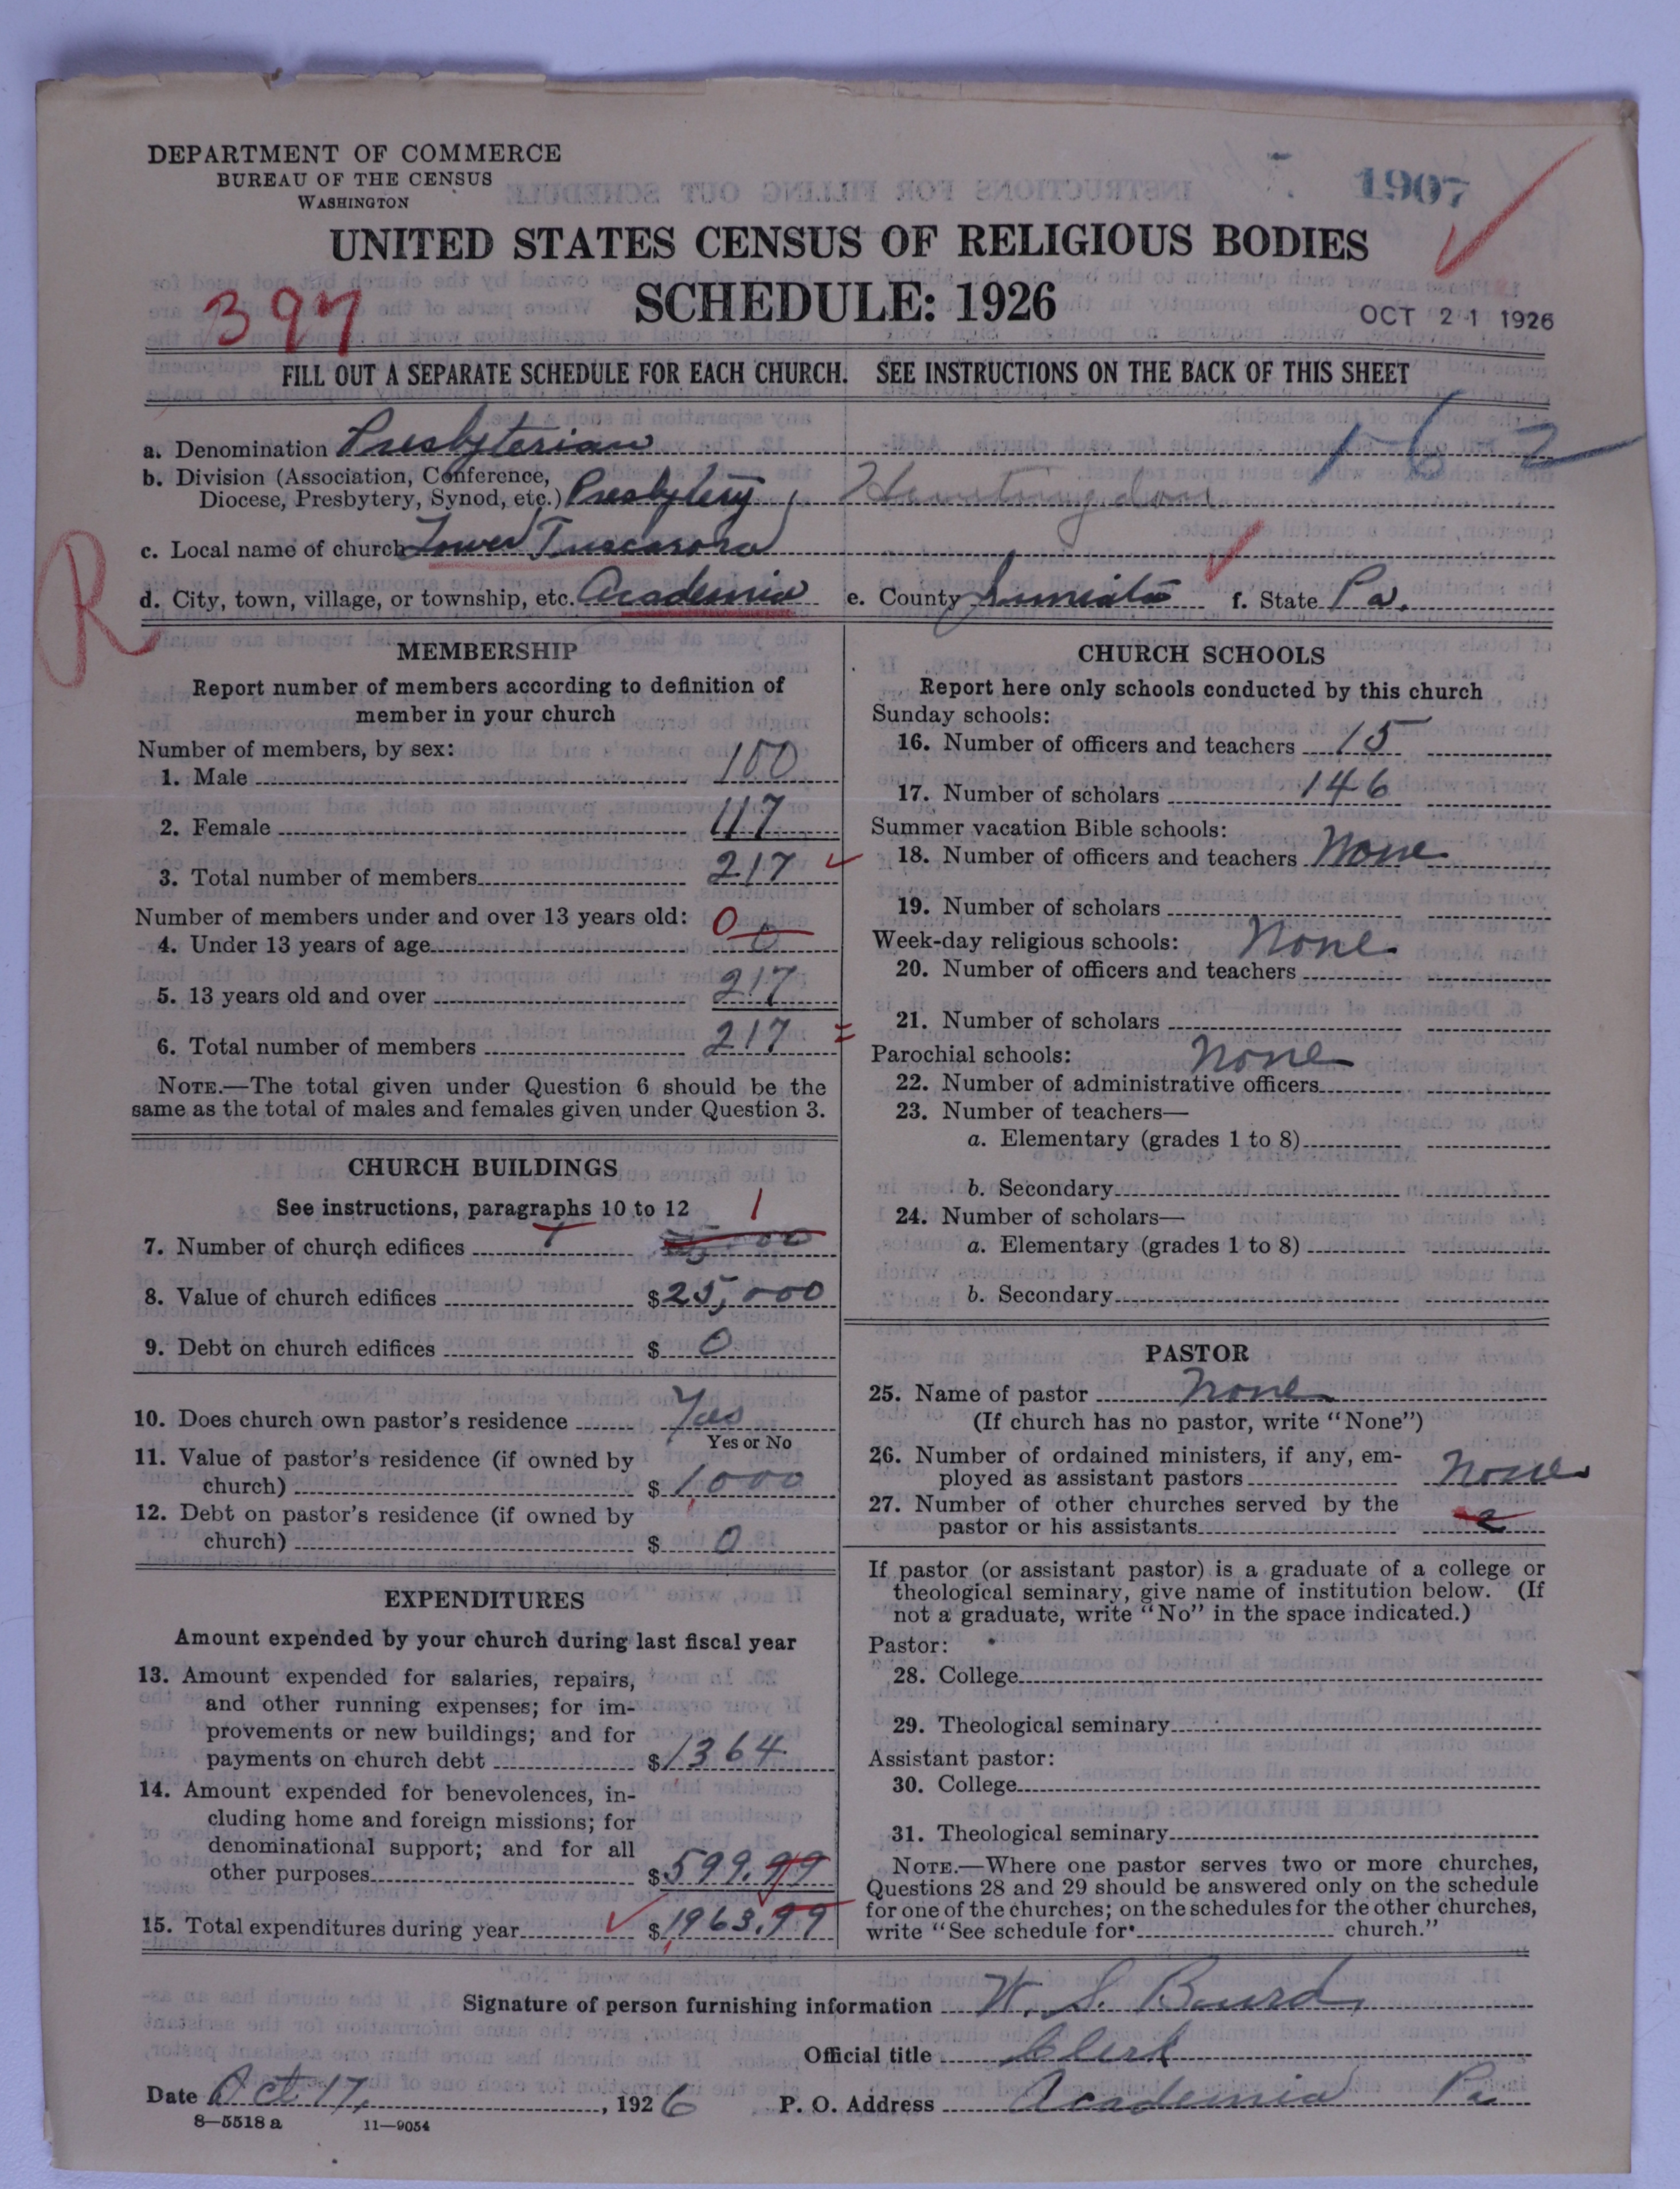 DEPARTMENT OF COMMERCE
BUREAU OF THE CENSUS
WASHINGTON
1907
UNITED STATES CENSUS OF RELIGIOUS BODIES
397
SCHEDULE: 1926
OCT 21 1926
FILL OUT A SEPARATE SCHEDULE FOR EACH CHURCH. SEE INSTRUCTIONS ON THE BACK OF THIS SHEET
1-6 2
a. Denomination Presbyterian
b. Division (Association, Conference,
Diocese, Presbytery, Synod, etc.) Presbytery, Huntingdon
c. Local name of church Lower Tuscarora
R
d. City, town, village, or township, etc. Academia e. County Juniata f. State Pa.
MEMBERSHIP
Report number of members according to definition of
member in your church
Number of members, by sex:
1. Male 100
2. Female 117
3. Total number of members 217
Number of members under and over 13 years old: 0
4. Under 13 years of age 0
5. 13 years old and over 217
6. Total number of members 217 =
NOTE.—The total given under Question 6 should be the
same as the total of males and females given under Question 3.
CHURCH BUILDINGS
See instructions, paragraphs 10 to 12 1
7. Number of church edifices
8. Value of church edifices $25,000
9. Debt on church edifices $ 0
10. Does church own pastor's residence Yes
Yes or No
11. Value of pastor's residence (if owned by
church) $1,000
12. Debt on pastor's residence (if owned by
church) $ 0
EXPENDITURES
Amount expended by your church during last fiscal year
13. Amount expended for salaries, repairs,
and other running expenses; for im-
provements or new buildings; and for
payments on church debt $1364
14. Amount expended for benevolences, in-
cluding home and foreign missions; for
denominational support; and for all
other purposes $599.99
15. Total expenditures during year $1963.99
CHURCH SCHOOLS
Report here only schools conducted by this church
Sunday schools:
16. Number of officers and teachers 15
17. Number of scholars 146
Summer vacation Bible schools:
18. Number of officers and teachers None
19. Number of scholars
Week-day religious schools: None
20. Number of officers and teachers
21. Number of scholars
Parochial schools: None
22. Number of administrative officers
23. Number of teachers—
a. Elementary (grades 1 to 8)
b. Secondary
24. Number of scholars—
a. Elementary (grades 1 to 8)
b. Secondary
PASTOR
25. Name of pastor None
(If church has no pastor, write "None")
26. Number of ordained ministers, if any, em-
ployed as assistant pastors None
27. Number of other churches served by the
pastor or his assistants 2
If pastor (or assistant pastor) is a graduate of a college or
theological seminary, give name of institution below. (If
not a graduate, write "No" in the space indicated.)
Pastor:
28. College
29. Theological seminary
Assistant pastor:
30. College
31. Theological seminary
NOTE.—Where one pastor serves two or more churches,
Questions 28 and 29 should be answered only on the schedule
for one of the churches; on the schedules for the other churches,
write "See schedule for church."
Signature of person furnishing information W. S. Baurd,
Official title Clerk
Date Oct 17, , 1926 P. O. Address Academia Pa
8—5518 a 11—9054